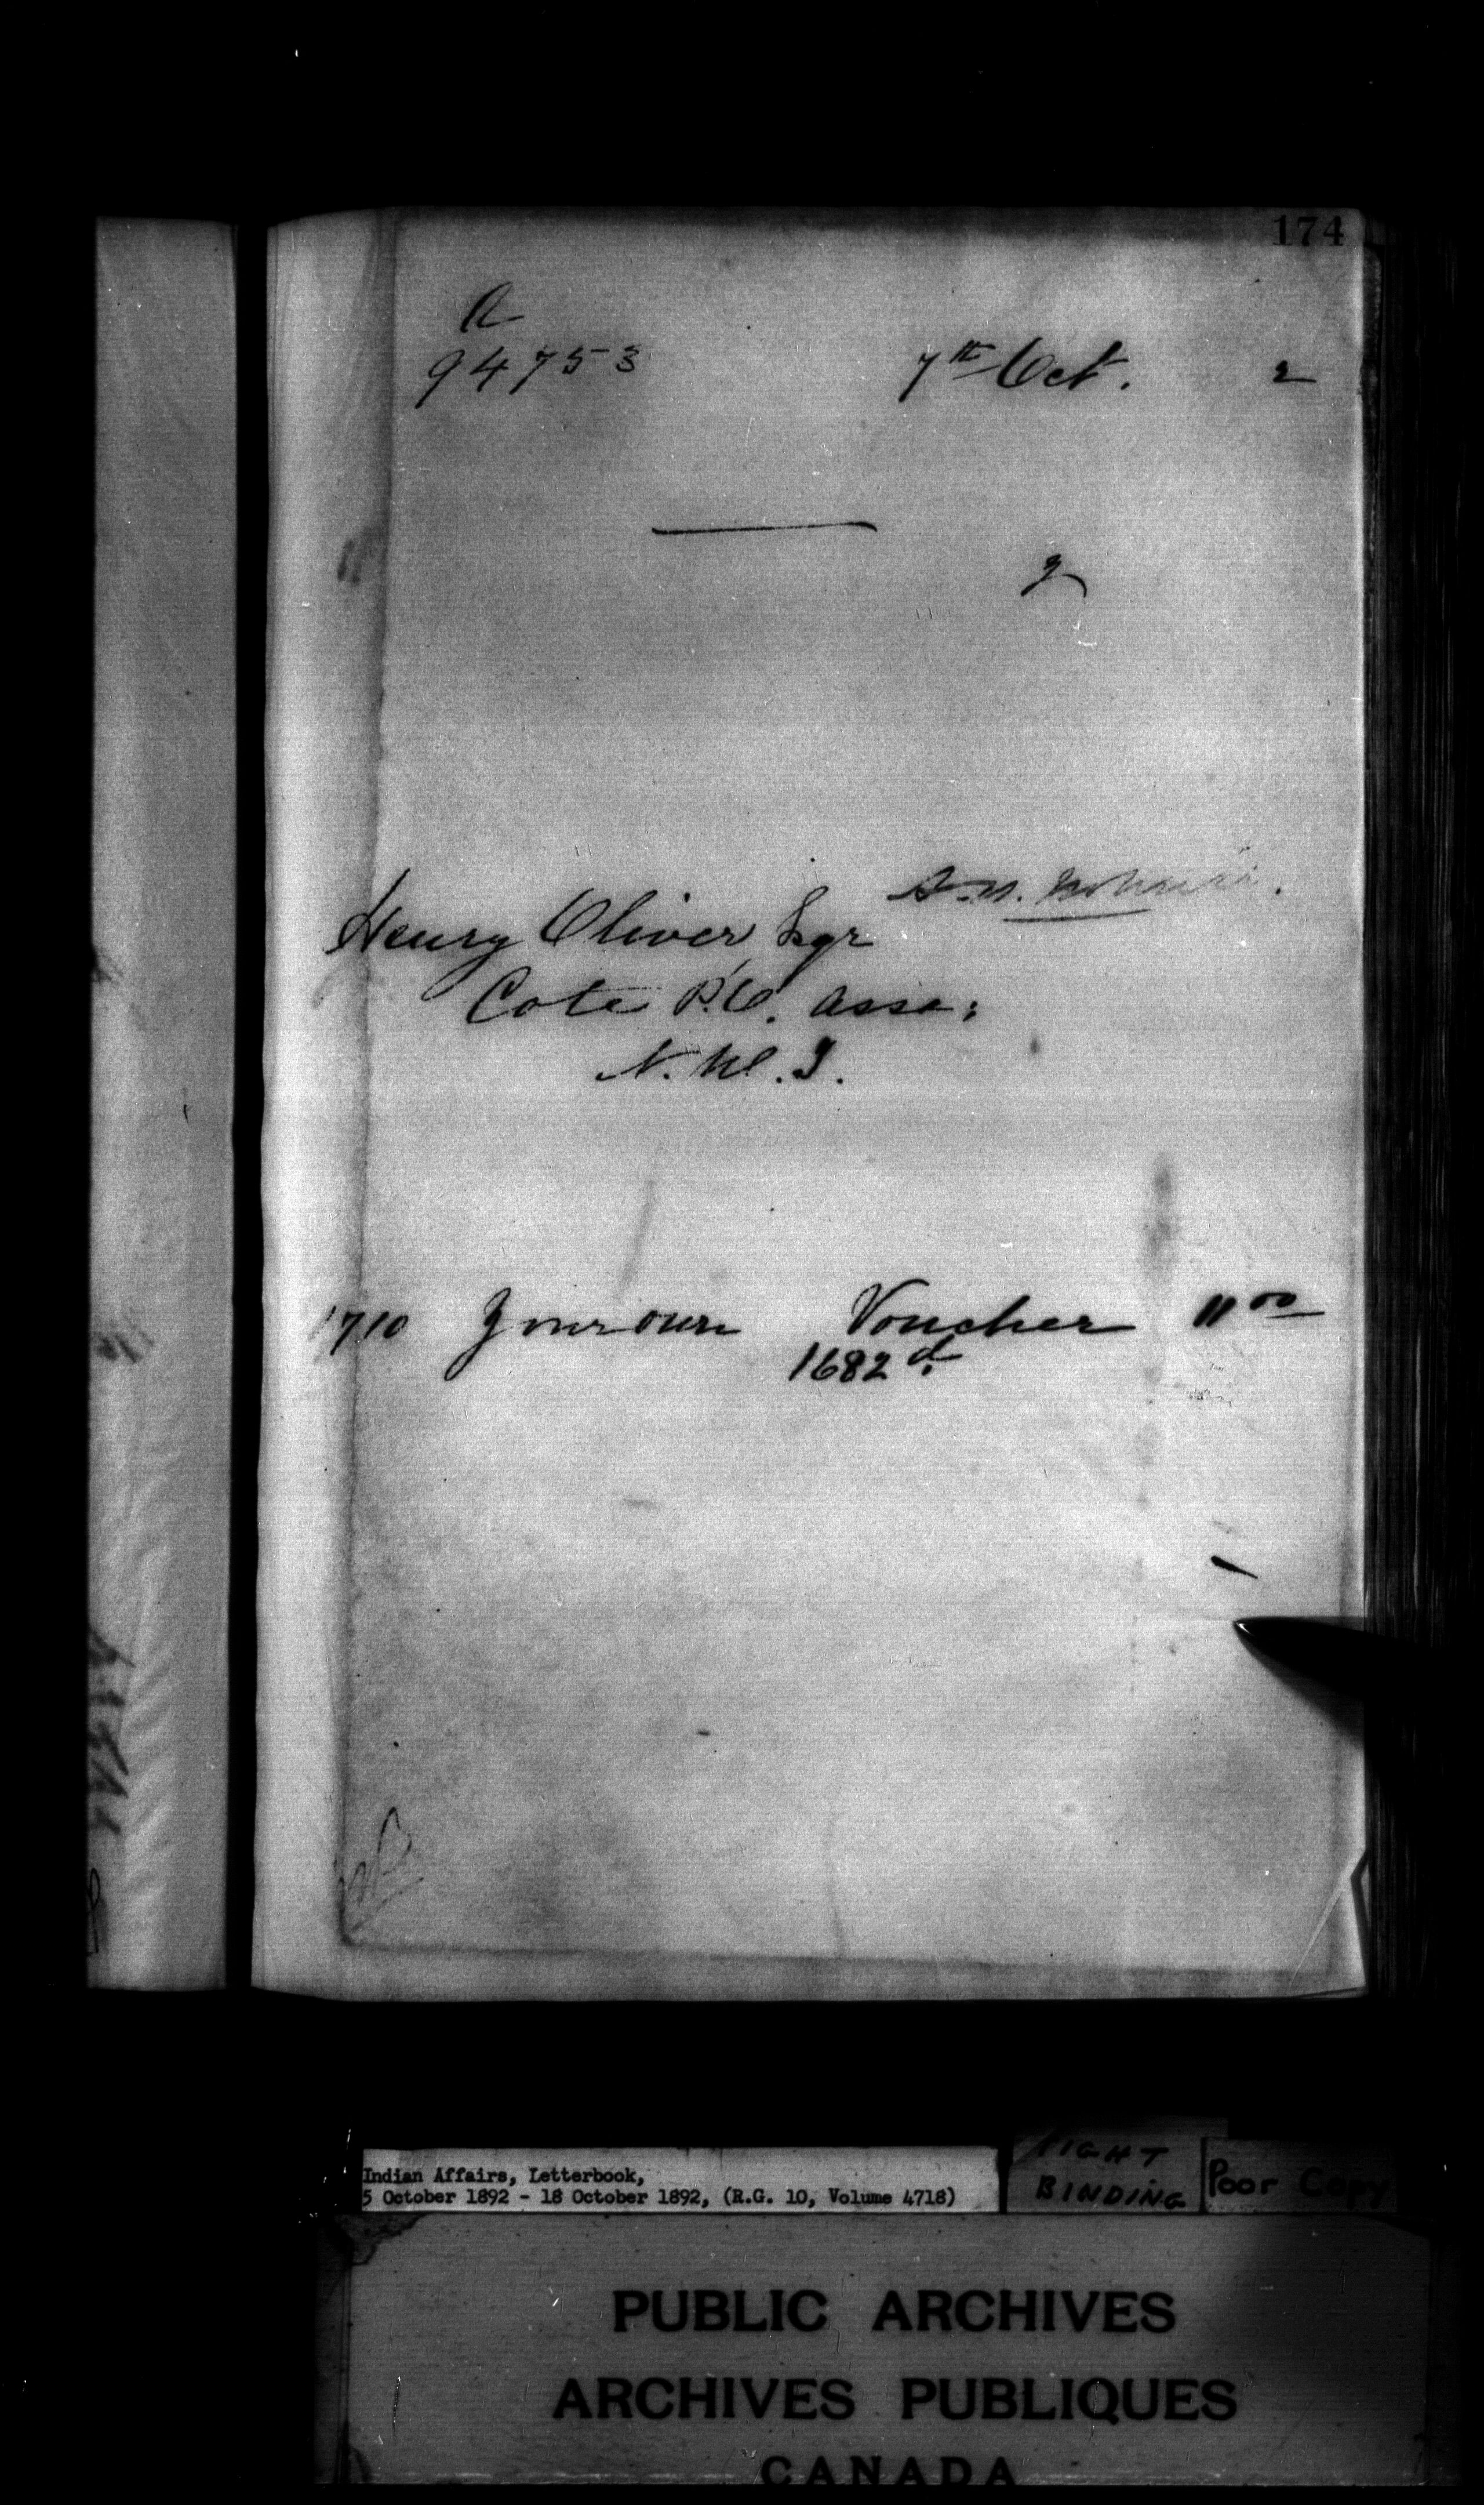 174
A
94753 7th Oct. 2
Henry Oliver Esqr
Cote P.O. Assa:
N.W.T.
1710 Your own Voucher 11 00
1682 d.
Indian Affairs, Letterbook,
5 October 1892 - 18 October 1892, (R.G. 10, Volume 4718)
TIGHT
BINDING
Poor Copy
PUBLIC ARCHIVES
ARCHIVES PUBLIQUES
CANADA